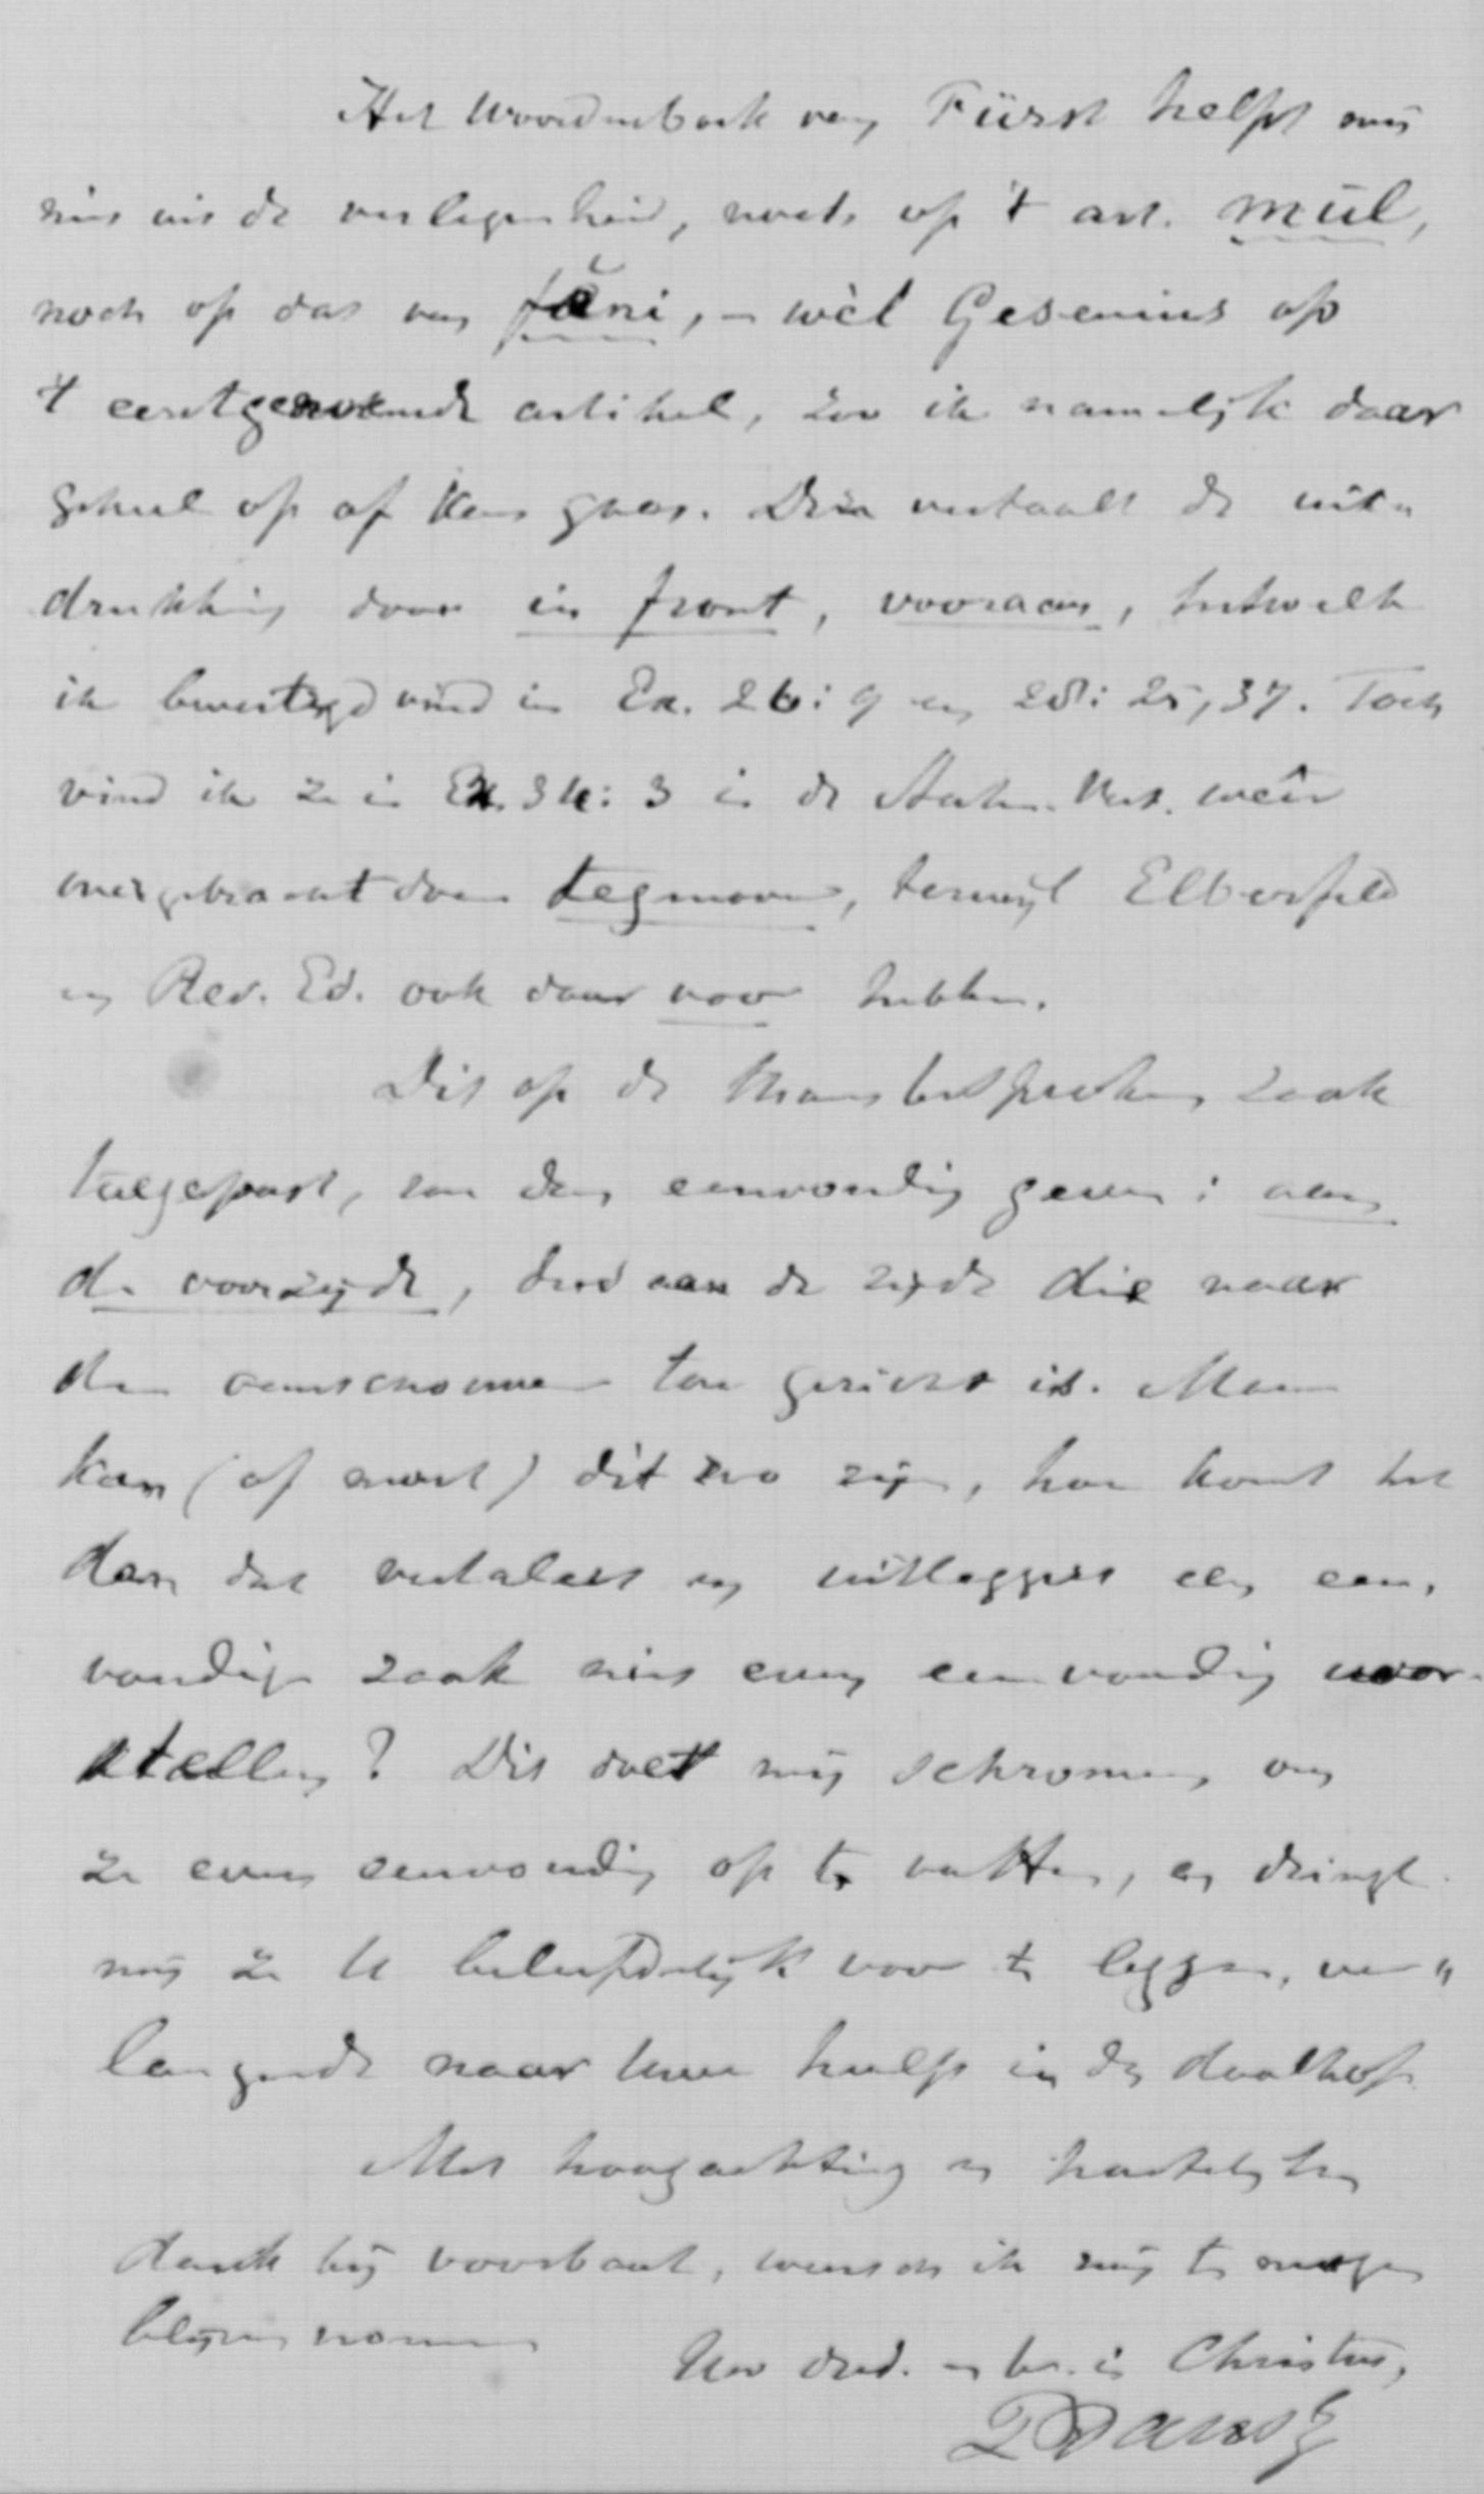 Het Woordenboek van Fürst helpt mij
niet uit de verlegenheid, noch op 't art. mūl,
noch op dat van făni, – wèl Gesenius op
't eerstgenoemde artikel, zoo ik namelijk daar
geheel op af kan gaan. Deze vertaalt de uit„
drukking door in front, vooraan, hetwelk
ik bevestigd vind in Ex. 26:9 en 28:25,37. Toch
vind ik ze in Ex. 34:3 in de Staten-Vert. weêr
overgebracht door tegenover, terwijl Elberfeld
en Rev. Ed. ook daar voor hebben.
Dit op de thans besproken zaak
toegepast, zou dan eenvoudig geven: aan
de voorzijde, dus aan de zijde die naar
den aanschouwer toe gericht is. Maar
kan (of moet) dit zoo zijn, hoe komt het
dan dat vertalers en uitleggers een een„
voudige zaak niet even eenvoudig voor-
stellen? Dit doet mij schromen, om
ze even eenvoudig op te vatten, en dringt
mij ze U beleefdelijk voor te leggen, ver„
langende naar Uwe hulp in den doolhof.
Met hoogachting en hartelijken
dank bij voorbaat, wensch ik mij te mogen
blijven noemen
Uw dnd. en br. in Christus,